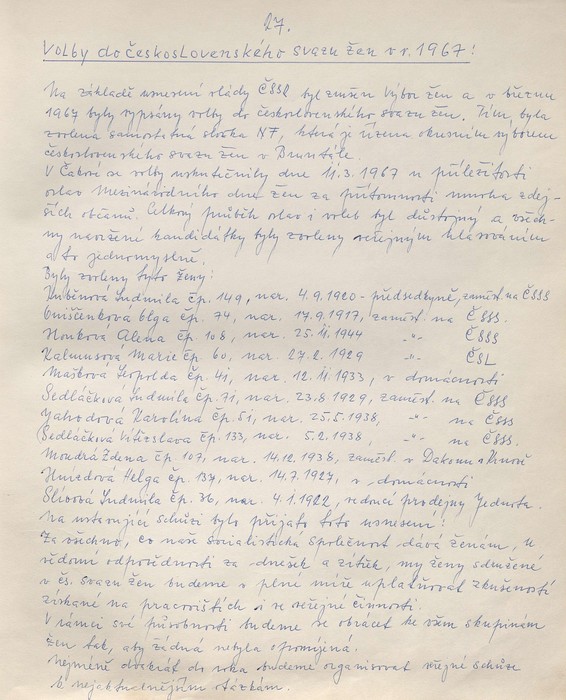 27.
Volby do československého svazu žen v r. 1967!
Na základě usnesení vlády ČSSR byl zrušen Výbor žen a v březnu
1967 byly vypsány volby do československého svazu žen. Tím byla
zvolena samostatná složka NF, která je řízena okresním výborem
československého svazu žen v Bruntále.
V Čakově se volby uskutečnily dne 11.3.1967 u příležitosti
oslav Mezinárodního dne žen za přítomnosti mnoha zdej-
ších občanů. Celkový průběh oslav i voleb byl důstojný a všech-
ny navržené kandidátky byly zvoleny veřejným hlasováním
a to jednomyslně.
Byly zvoleny tyto ženy:
Ludmila čp. 149, nar. 4.9.1920 - předsedkyně, zaměst. na ČSSS
Oniščenková Olga čp. 74, nar. 17.9.1917, zaměst. na ČSSS.
Alena čp. 108, nar. 25.11.1944 -"- ČSSS
Kalmusová Marie čp. 60, nar. 27.2.1929 -"- ČSL
Mašková Leopolda čp. 41, nar. 12.11.1933, v domácnosti
Sedláčková Ludmila čp. 71, nar. 23.8.1929, zaměst. na ČSSS
Jahodová Karolína čp. 51, nar. 25.5.1938, -"- na ČSSS
Sedláčková Vítězslava čp. 133, nar. 5.2.1938, -"- na ČSSS.
Moudrá Zdena čp. 107, nar. 14.12.1938, zaměst. v Dakonu v Krnově
Hnízdová Helga čp. 134, nar. 14.7.1927, v domácnosti
Slívová Ludmila čp. 36, nar. 4.1.1922, vedoucí prodejny Jednota.
Na ustavující schůzi bylo přijato toto usnesení:
Za všechno, co naše socialistická společnost dává ženám, u
vědomí odpovědnosti za dnešek a zítřek, my ženy sdružené
v čs. svazu žen budeme v plné míře uplatňovat zkušenosti
získané na pracovištích i ve veřejné činnosti.
V rámci své působnosti budeme se obracet ke všem skupinám
žen tak, aby žádná nebyla opomíjená.
Nejméně dvakrát do roka budeme organisovat veřejné schůze
k nejaktuelnějším otázkám.